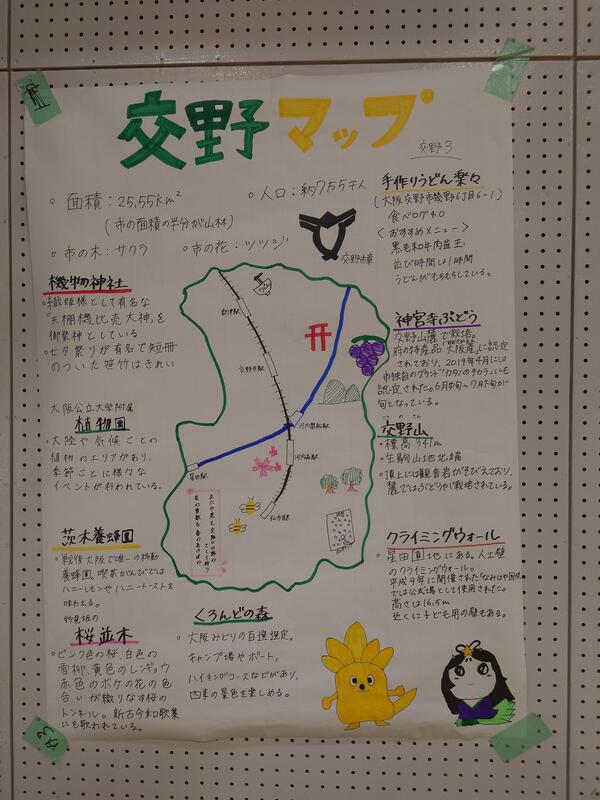 交野マップ
交野3
・面積：25,55km²
(市の面積の半分が山林)
・人口：約7万5千人
・市の木：サクラ
・市の花：ツツジ
交野市章
手作りうどん楽々
(大阪交野市幾野6丁目6-1)
食べログ4.0
〈おすすめメニュー〉
黒毛和牛肉釜玉
並び時間は1時間
うどんがもちもちしている。
機物神社
・織姫様として有名な
「天棚機比売大神」を
御祭神としている
・七夕祭りが有名で短冊
のついた笹竹はきれい
神宮寺ぶどう
交野山麓で栽培。
府の特産品「大阪産」に認定
されており、2019年4月には
市独自のブランド「カタノのチカラ」にも
認定された。6月中旬〜7月下旬が
旬となっている。
大阪公立大学附属
植物園
・大陸や気候ごとの
植物のエリアがあり、
季節ごとに様々な
イベントが行われている。
交野山
・標高341m
・生駒山地北端
・頂上には観音岩がそびえており、
麓ではぶどうが栽培されている。
茨木養蜂園
・戦後大阪で唯一の移動
養蜂園。喫茶かんびでは
ハニーレモンやハニートーストを
味わえる。
クライミングウォール
・星田園地にある。人工壁
のクライミングウォール。
平成9年に開催された「なみはや国体」
では公式場として使用された。
高さは16.5m
近くに子ども用の壁もある。
妙見坂の
桜並木
・ピンク色の桜、白色の
雪柳、黄色のレンギョウ
赤色のボケの花の色
合いが織りなす桜の
トンネル。新古今和歌集
にも歌われている。
くろんどの森
・大阪みどりの百選選定。
キャンプ場やボート、
ハイキングコースなどがあり、
四季の景色を楽しめる。
交野市駅
河内磐船駅
河内森駅
星田駅
私市駅
またや見む交野の御野の
さくら狩り
花の雪散る春のあけぼの